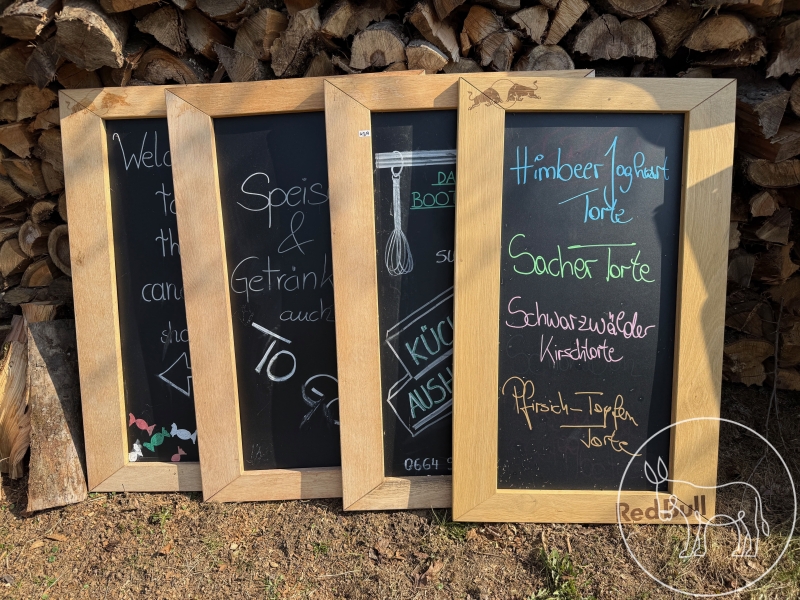 Welc
to
th
can
sho
Speis
&
Getränk
auch
To
Go
DA
BOOT
su
KÜC
AUSH
0664 5
Himbeer Joghurt
Torte
Sacher Torte
Schwarzwälder
Kirschtorte
Pfirsich-Topfen
Torte
Red Bull